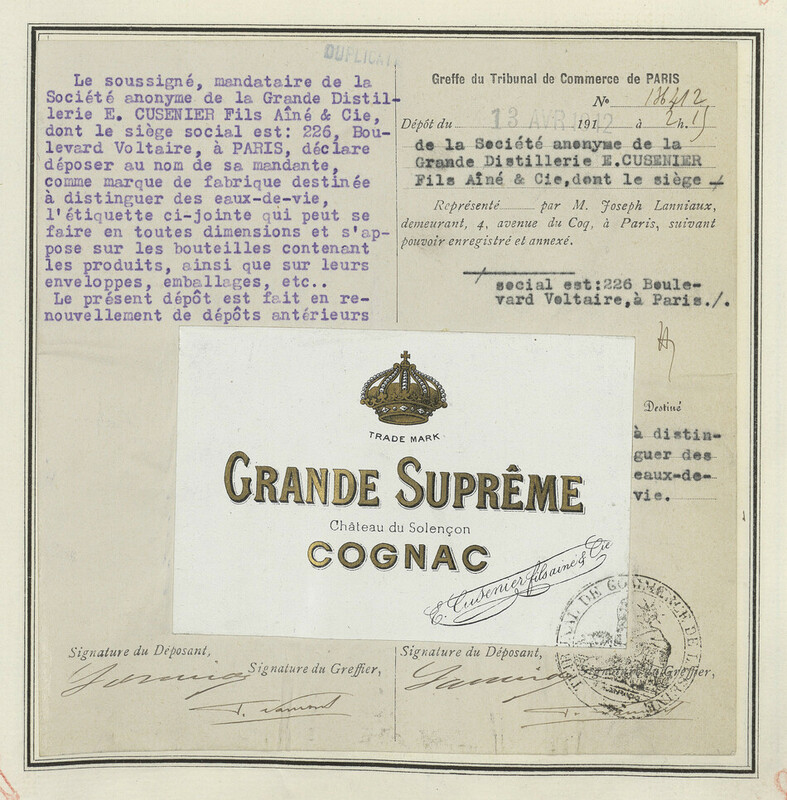 DUPLICATA
Le soussigné, mandataire de la
Société anonyme de la Grande Distil-
lerie E. CUSENIER Fils Aîné & Cie,
dont le siège social est: 226, Bou-
levard Voltaire, à PARIS, déclare
déposer au nom de sa mandante,
comme marque de fabrique destinée
à distinguer des eaux-de-vie,
l'étiquette ci-jointe qui peut se
faire en toutes dimensions et s'ap-
pose sur les bouteilles contenant
les produits, ainsi que sur leurs
enveloppes, emballages, etc..
Le présent dépôt est fait en re-
nouvellement de dépôts antérieurs
Greffe du Tribunal de Commerce de PARIS
No 136412
Dépôt du 13 AVR 1912 à 2h.15
de la Société anonyme de la
Grande Distillerie E.CUSENIER
Fils Aîné & Cie,dont le siège
Représenté par M. Joseph Lanniaux,
demeurant, 4, avenue du Coq, à Paris, suivant
pouvoir enregistré et annexé.
social est:226 Boule-
vard Voltaire,à Paris./.
Destiné
à distin-
guer des
eaux-de-
vie.
TRADE MARK
GRANDE SUPRÊME
Château du Solençon
COGNAC
E. Cusenier fils aîné & Cie
TRIBUNAL DE COMMERCE DE LA SEINE
Signature du Déposant,
Signature du Greffier,
Signature du Déposant,
Signature du Greffier,